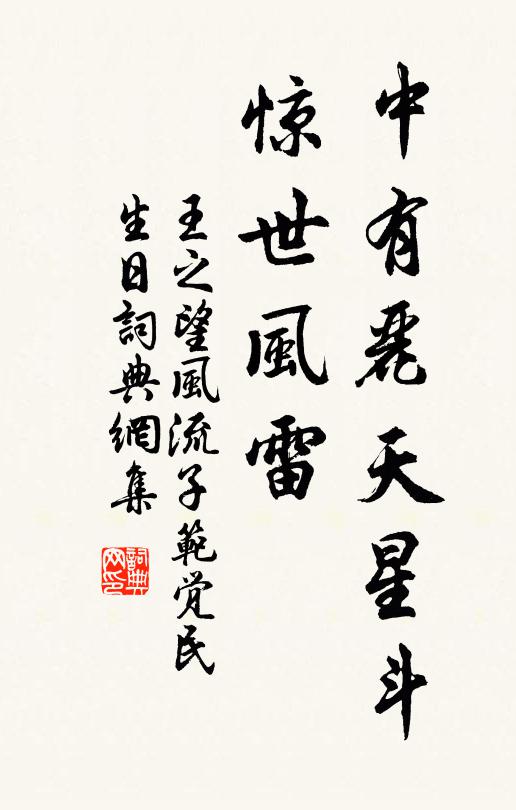 中有麗天星斗
惊世風雷
王之望風流子範觉民
生日詞典網集
詞典网印